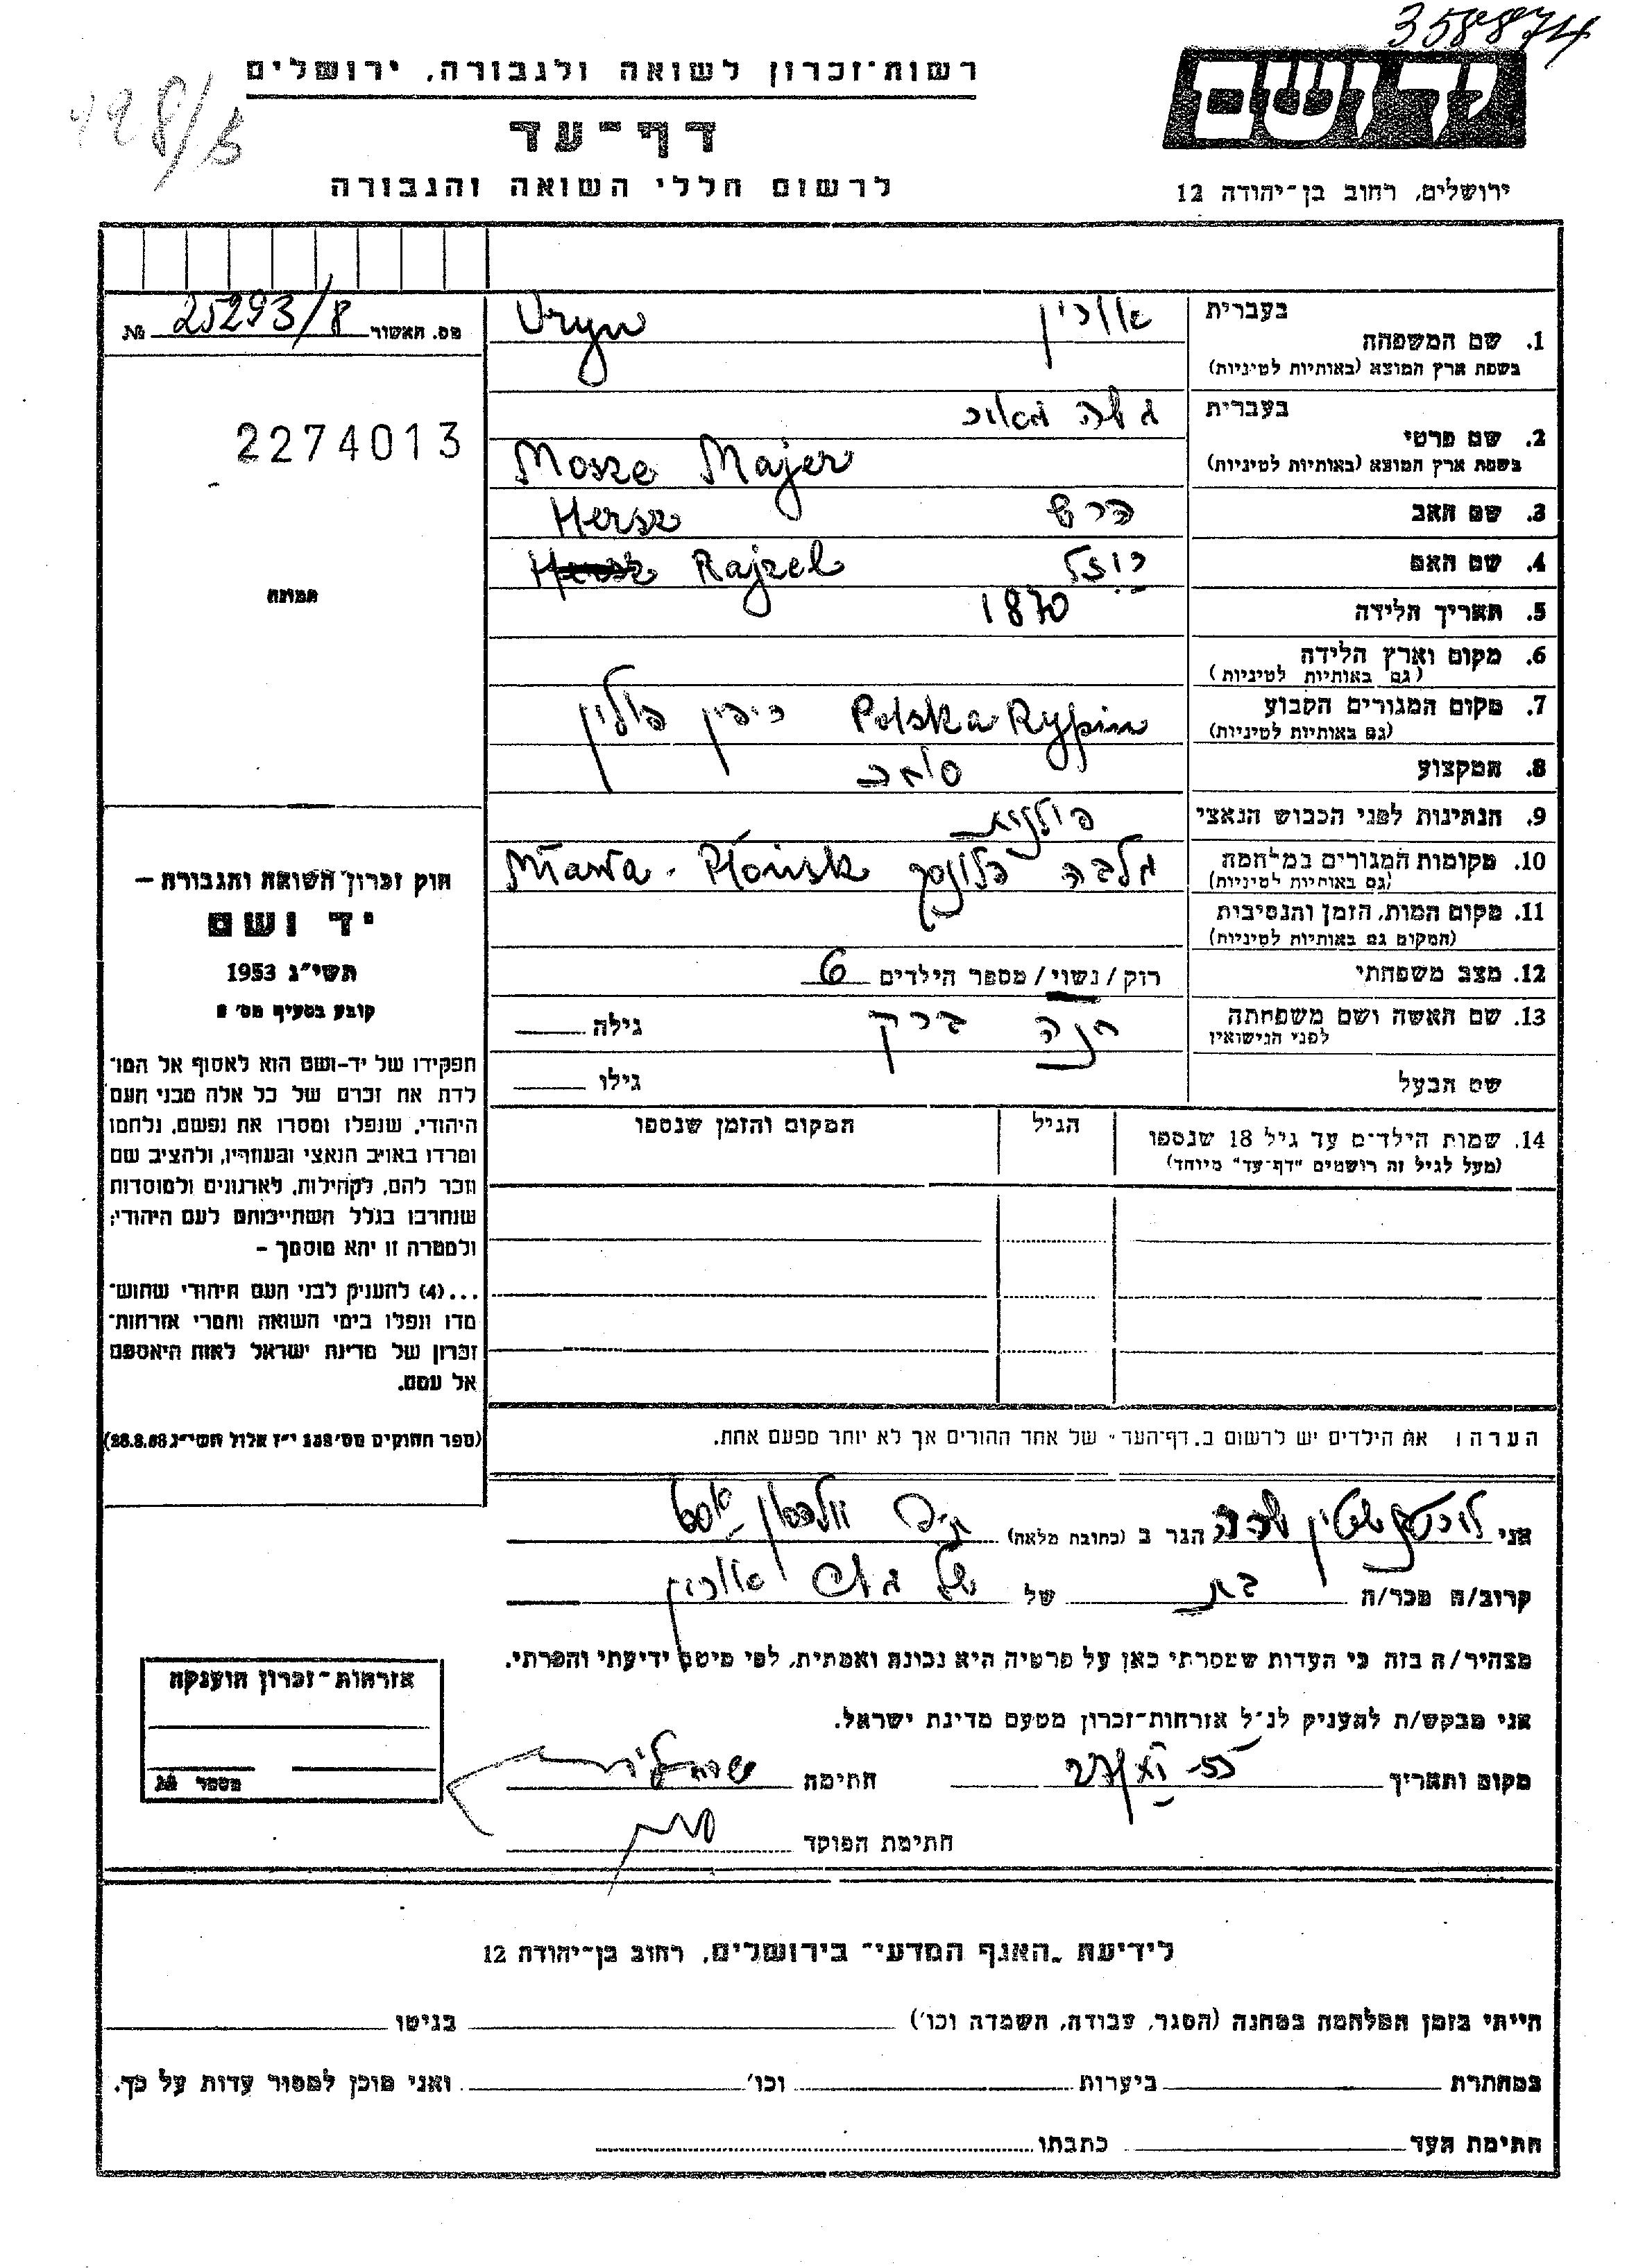 358874
428/ב
רשות־זכרון לשואה ולגבורה, ירושלים
דף־עד
לרשום חללי השואה והגבורה
יד ושם
ירושלים, רחוב בן־יהודה 12
מס. האשור 25293/8 №
2274013
תמונה
1. שם המשפחה
בעברית אורין
בשפת ארץ המוצא (באותיות לטיניות) Uryn
2. שם פרטי
בעברית משה מאיר
בשפת ארץ המוצא (באותיות לטיניות) Mosze Majer
3. שם האב הרש Hersz
4. שם האם Rajzel
5. תאריך הלידה 1870
6. מקום וארץ הלידה
(גם באותיות לטיניות)
7. מקום המגורים הקבוע Polska Rypin ריפין פולין
(גם באותיות לטיניות)
8. המקצוע סוחר
9. הנתינות לפני הכבוש הנאצי פולנית
10. מקומות המגורים במלחמה מלבה פלונסק Mława - Płońsk
(גם באותיות לטיניות)
11. מקום המות, הזמן והנסיבות
(המקום גם באותיות לטיניות)
12. מצב משפחתי רוק/נשוי/מספר הילדים 6
13. שם האשה ושם משפחתה חנה ברק גילה
לפני הנישואין
שם הבעל גילו
14. שמות הילדים עד גיל 18 שנספו הגיל המקום והזמן שנספו
(מעל לגיל זה רושמים "דף־עד" מיוחד)
הערה: את הילדים יש לרשום ב"דף־העד" של אחד ההורים אך לא יותר מפעם אחת.
חוק זכרון השואה והגבורה –
יד ושם
תשי״ג 1953
קובע בסעיף מס׳ 2
תפקידו של יד-ושם הוא לאסוף אל המו־
לדת את זכרם של כל אלה מבני העם
היהודי, שנפלו ומסרו את נפשם, נלחמו
ומרדו באויב הנאצי ובעוזריו, ולהציב שם
וזכר להם, לקהילות, לארגונים ולמוסדות
שנחרבו בגלל השתייכותם לעם היהודי;
ולמטרה זו יהא מוסמך –
...(4) להעניק לבני העם היהודי שהוש־
מדו ונפלו בימי השואה והמרי אזרחות־
זכרון של מדינת ישראל לאות היאספם
אל עמם.
(ספר החוקים מס׳ 132 י״ז אלול תשי״ג 28.8.53)
אני ליכטנשטיין שרה הגר ב (כתובת מלאה)
קרוב/ה מכר/ה בת של של משה אורין
מצהיר/ה בזה כי העדות שמסרתי כאן על פרטיה היא נכונה ואמתית, לפי מיטב ידיעתי והכרתי.
אני מבקש/ת להעניק לנ״ל אזרחות־זכרון מטעם מדינת ישראל.
מקום ותאריך חתימה
חתימת הפוקד
אזרחות־זכרון הוענקה
מספר №
לידיעת "האגף המדעי" בירושלים, רחוב בן־יהודה 12
הייתי בזמן המלחמה במחנה (הסגר, עבודה, השמדה וכו׳) בגיטו
במחתרת ביערות וכו׳ ואני מוכן למסור עדות על כך.
חתימת העד כתבתו